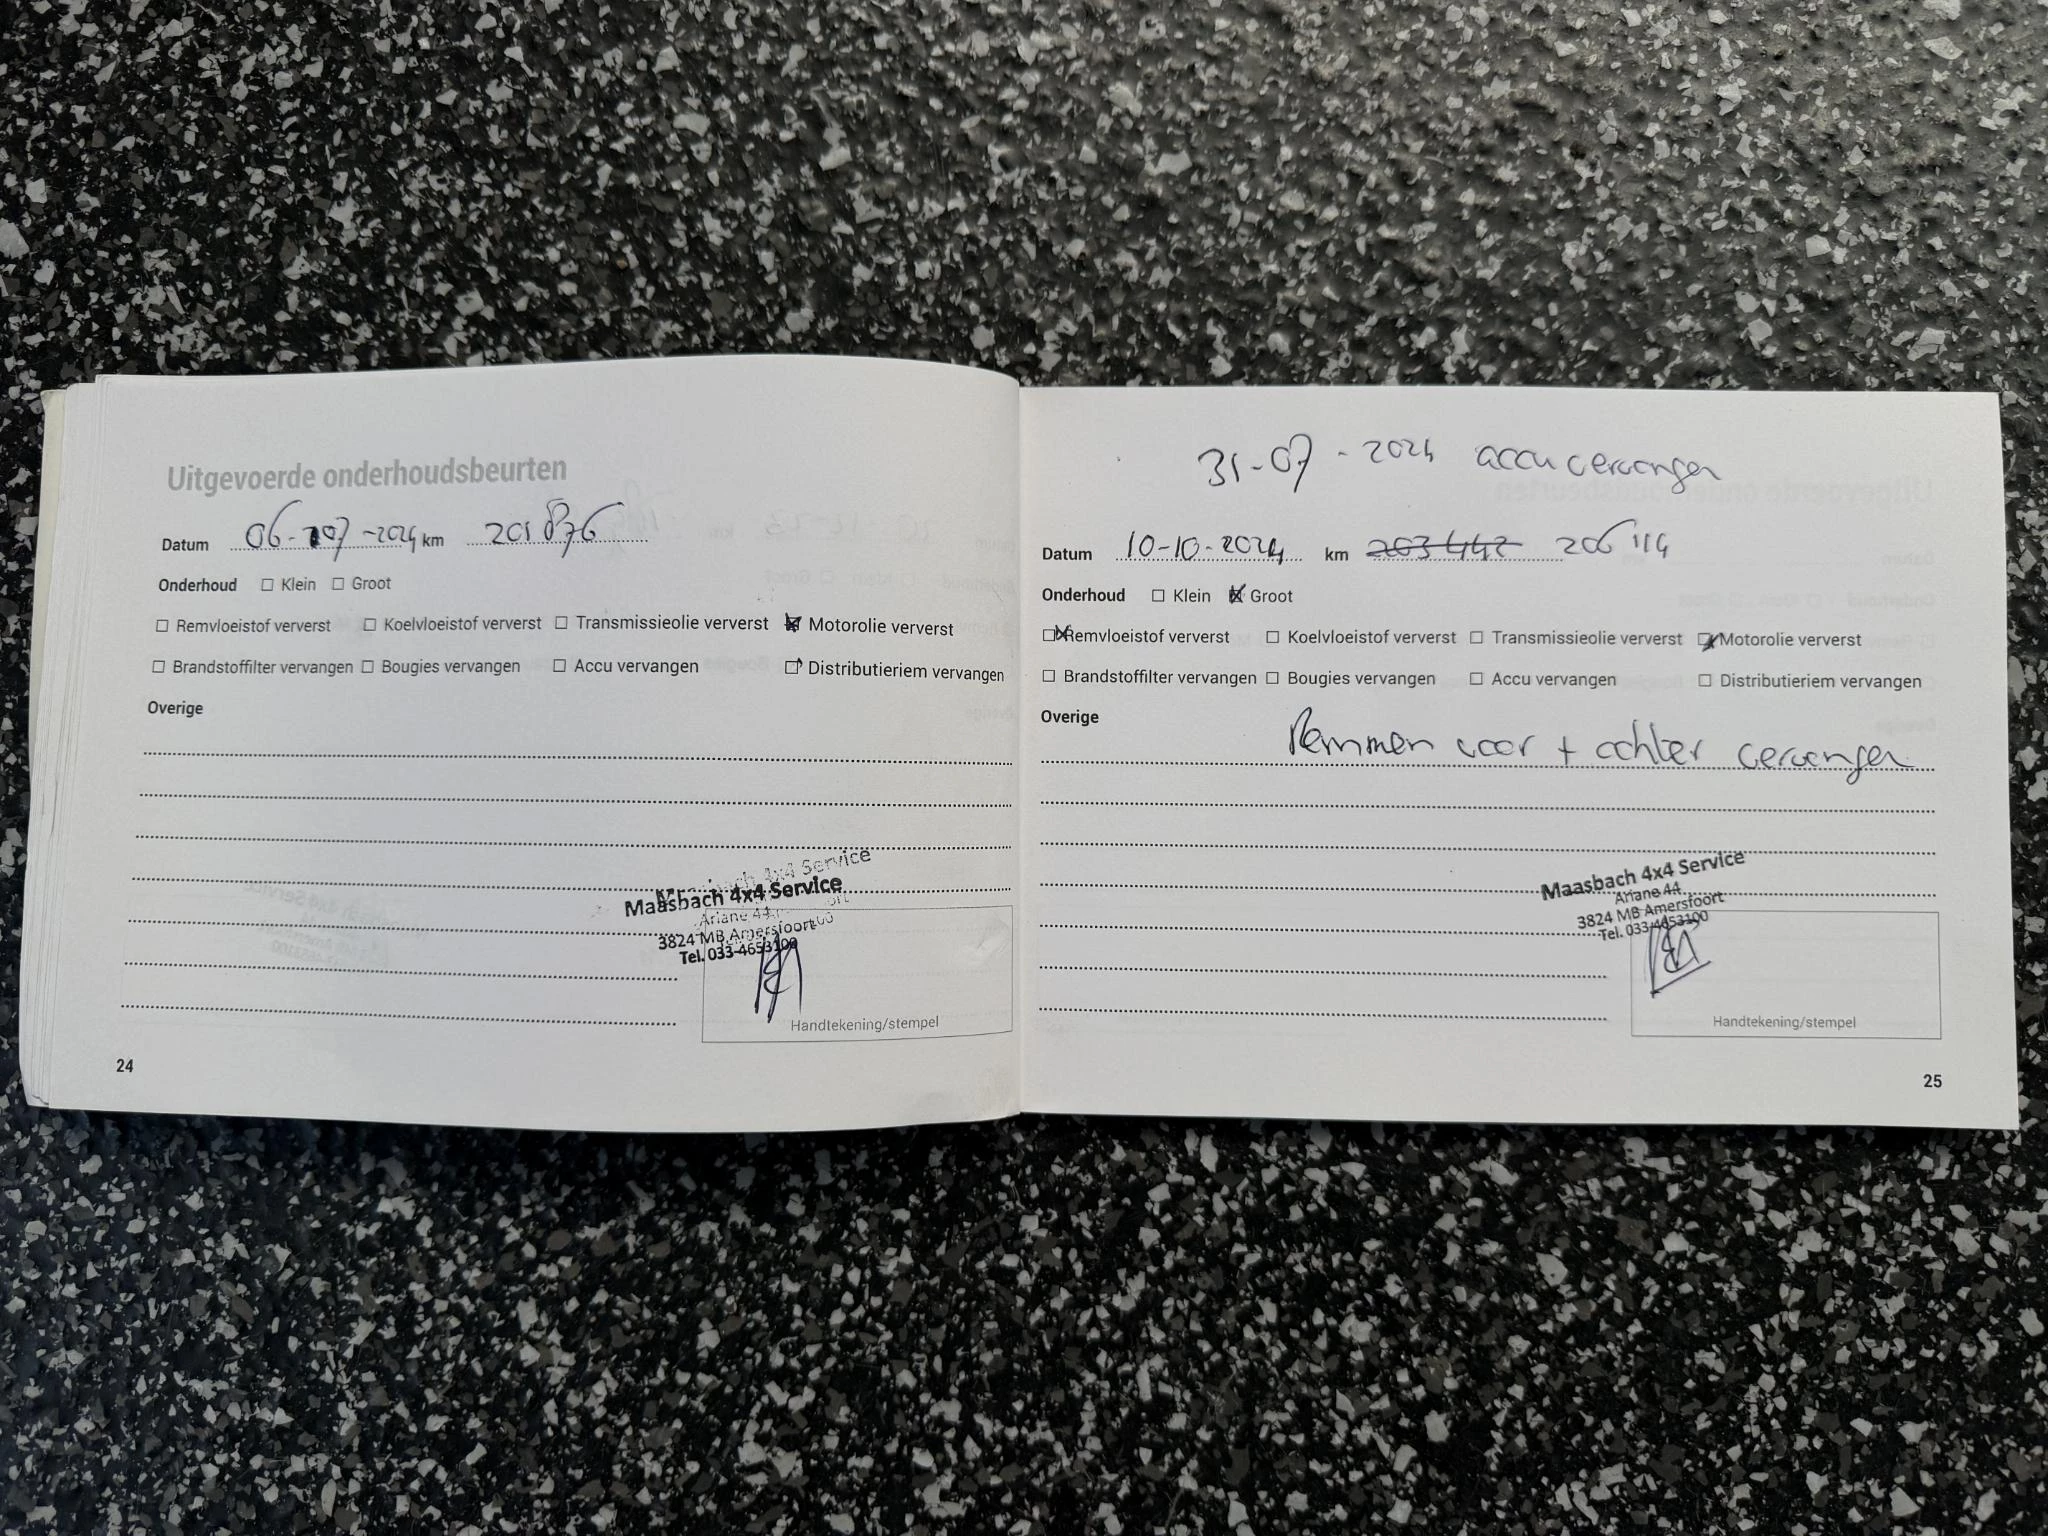 Uitgevoerde onderhoudsbeurten
Datum 06-07-2024 km 201876
Onderhoud ☐ Klein ☐ Groot
☐ Remvloeistof ververst ☐ Koelvloeistof ververst ☐ Transmissieolie ververst ☒ Motorolie ververst
☐ Brandstoffilter vervangen ☐ Bougies vervangen ☐ Accu vervangen ☐ Distributieriem vervangen
Overige
Maasbach 4x4 Service
Maasbach 4x4 Service
Ariane 44
3824 MB Amersfoort
Tel. 033-4653100
Handtekening/stempel
24
31-07-2024 accu vervangen
Datum 10-10-2024 km 203442 206114
Onderhoud ☐ Klein ☒ Groot
☒ Remvloeistof ververst ☐ Koelvloeistof ververst ☐ Transmissieolie ververst ☒ Motorolie ververst
☐ Brandstoffilter vervangen ☐ Bougies vervangen ☐ Accu vervangen ☐ Distributieriem vervangen
Overige
Remmen voor + achter vervangen
Maasbach 4x4 Service
Ariane 44
3824 MB Amersfoort
Tel. 033-4653100
Handtekening/stempel
25